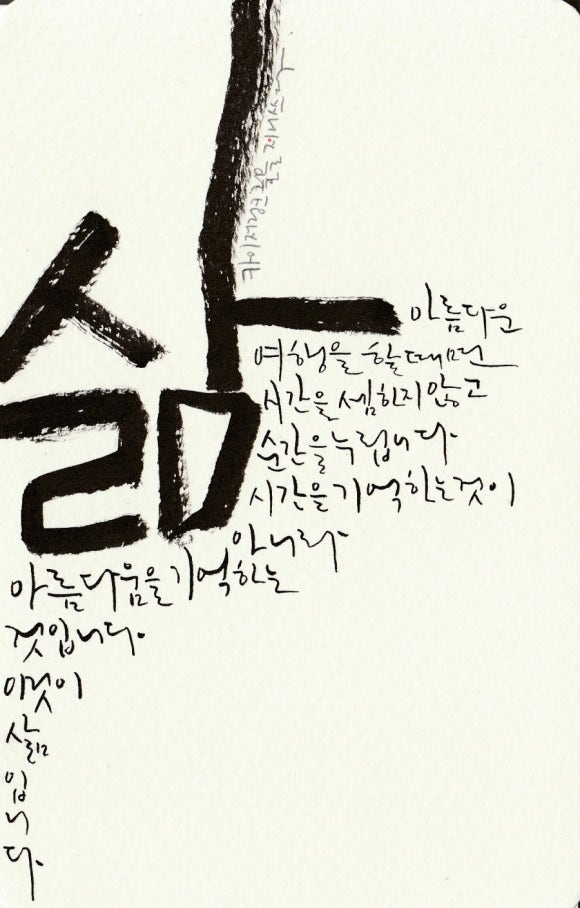 삶
아름다운
여행을 할때면
시간을 셈하지 않고
순간을 누립니다.
시간을 기억하는것이
아니라
아름다움을 기억하는
것입니다.
이것이
삶
입
니
다.